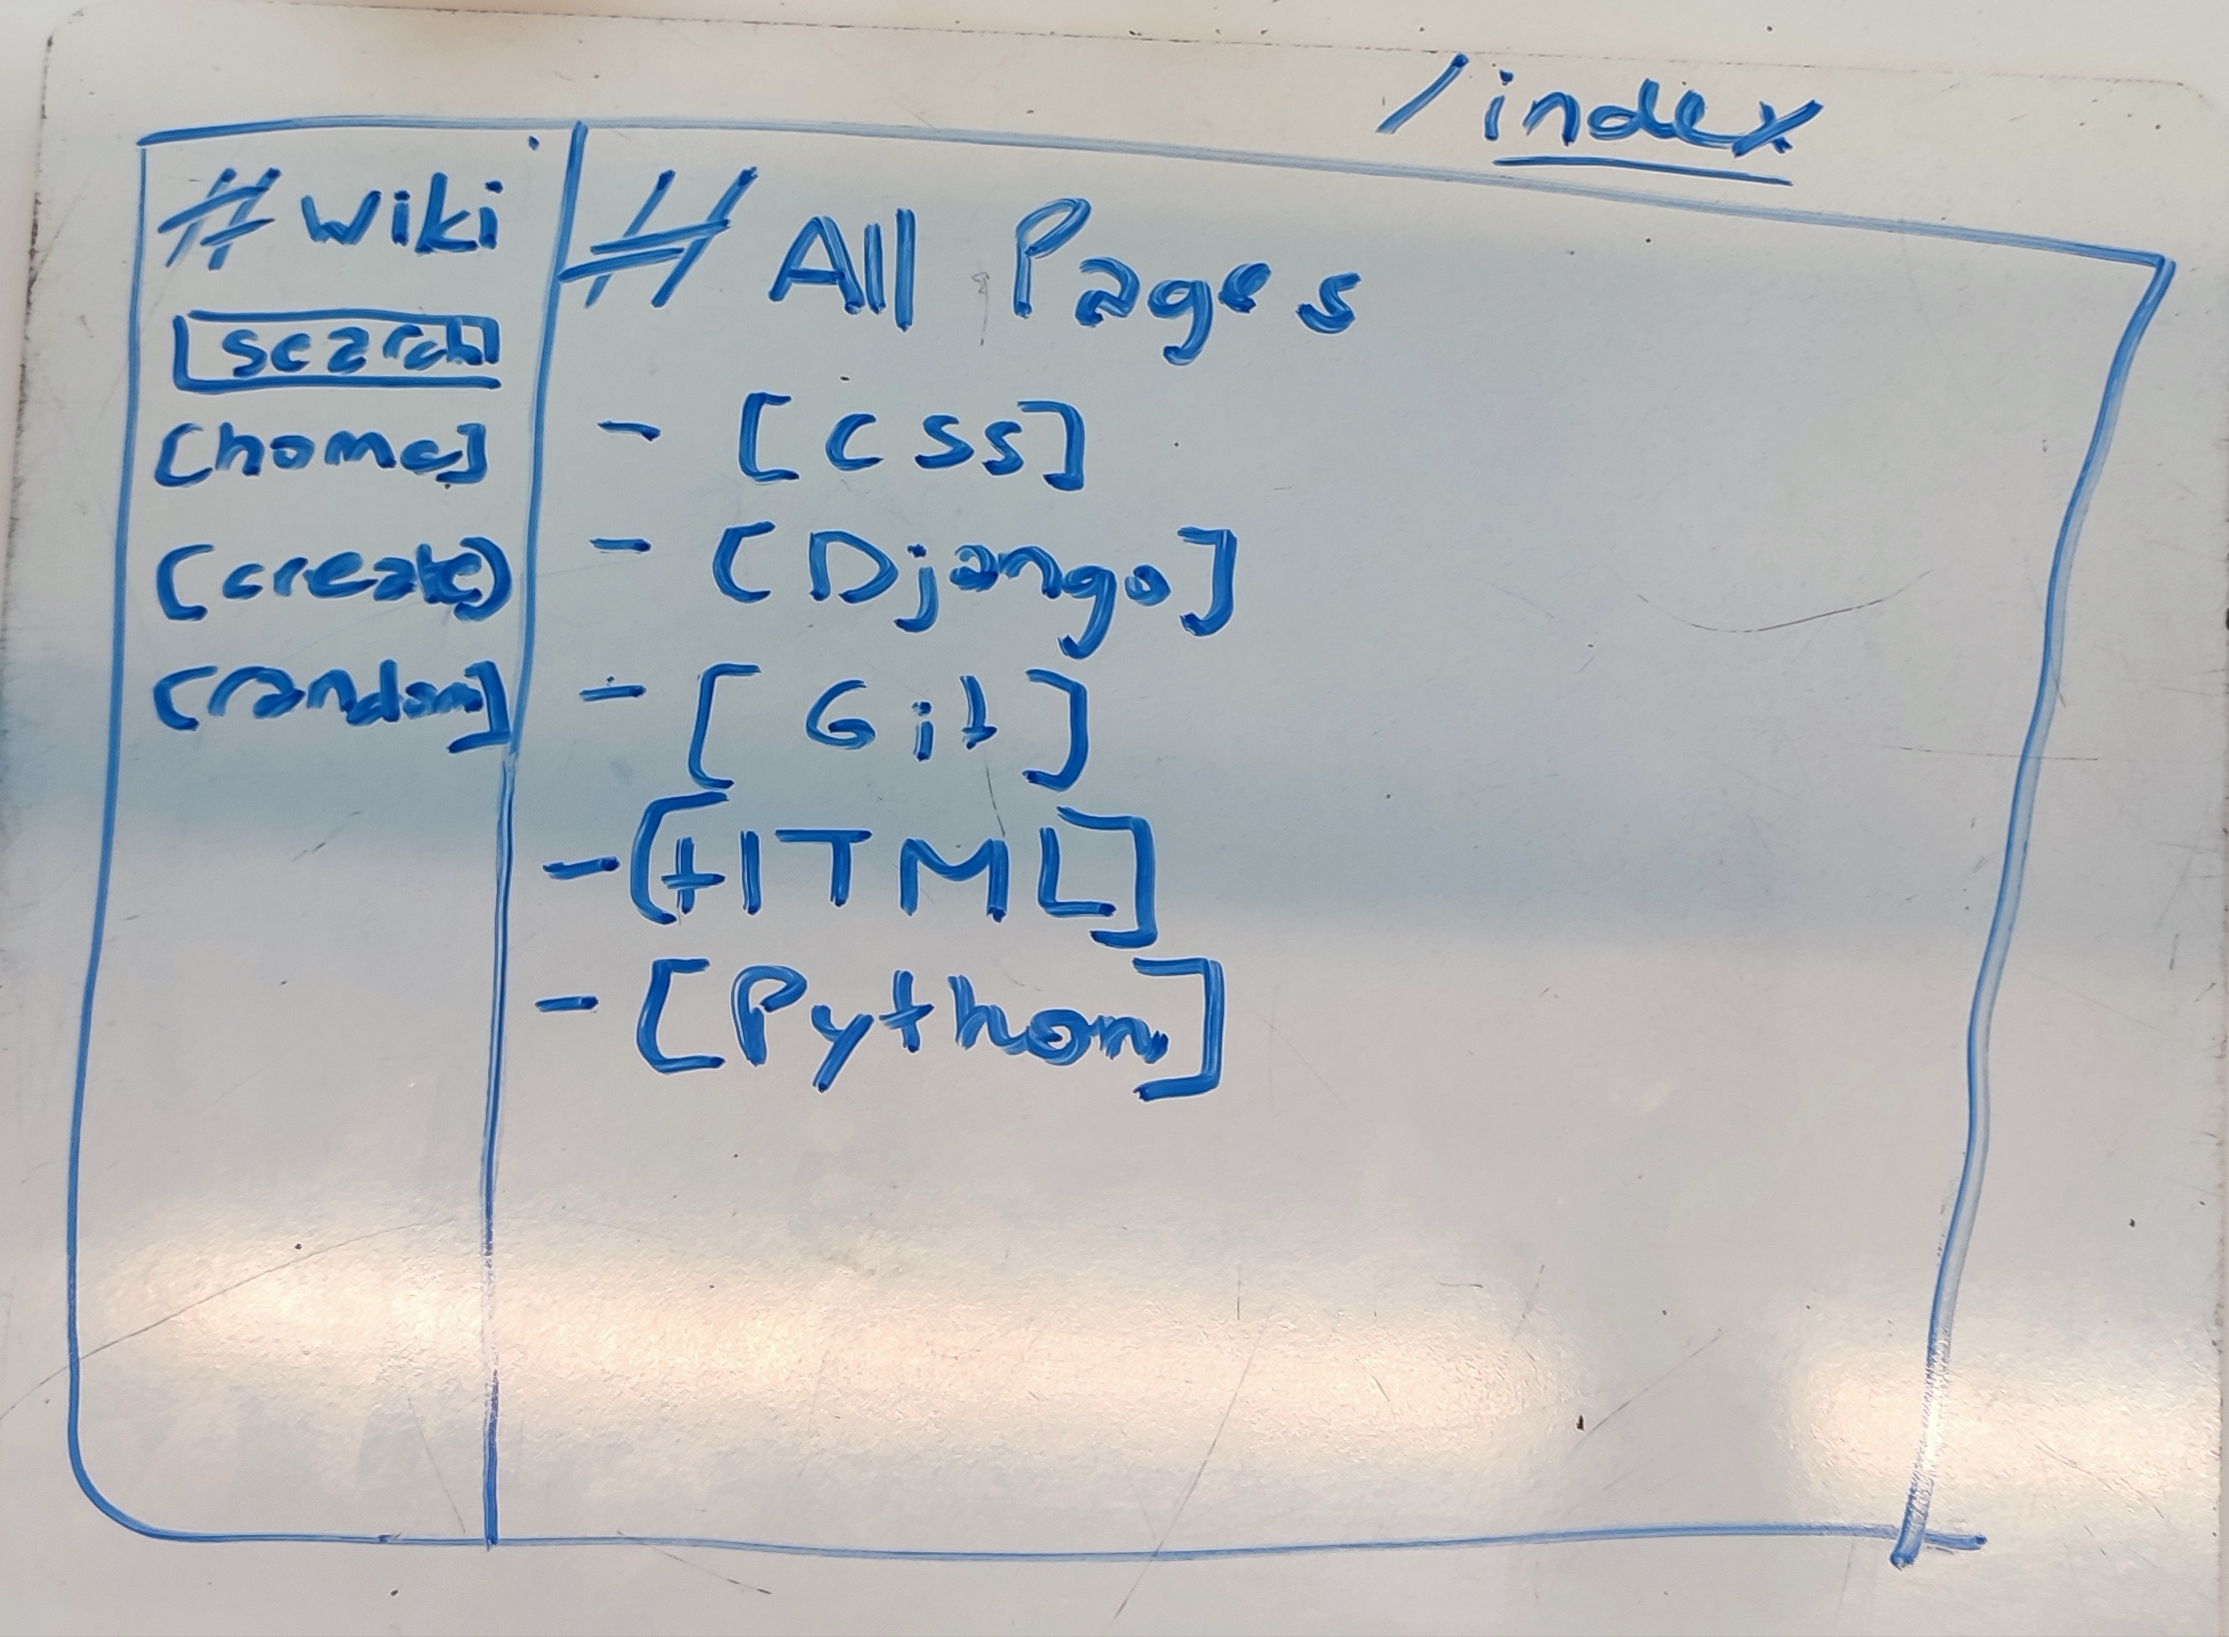 /index
# wiki
search
[home]
[create]
[random]
# All Pages
- [CSS]
- [Django]
- [Git]
- [HTML]
- [Python]